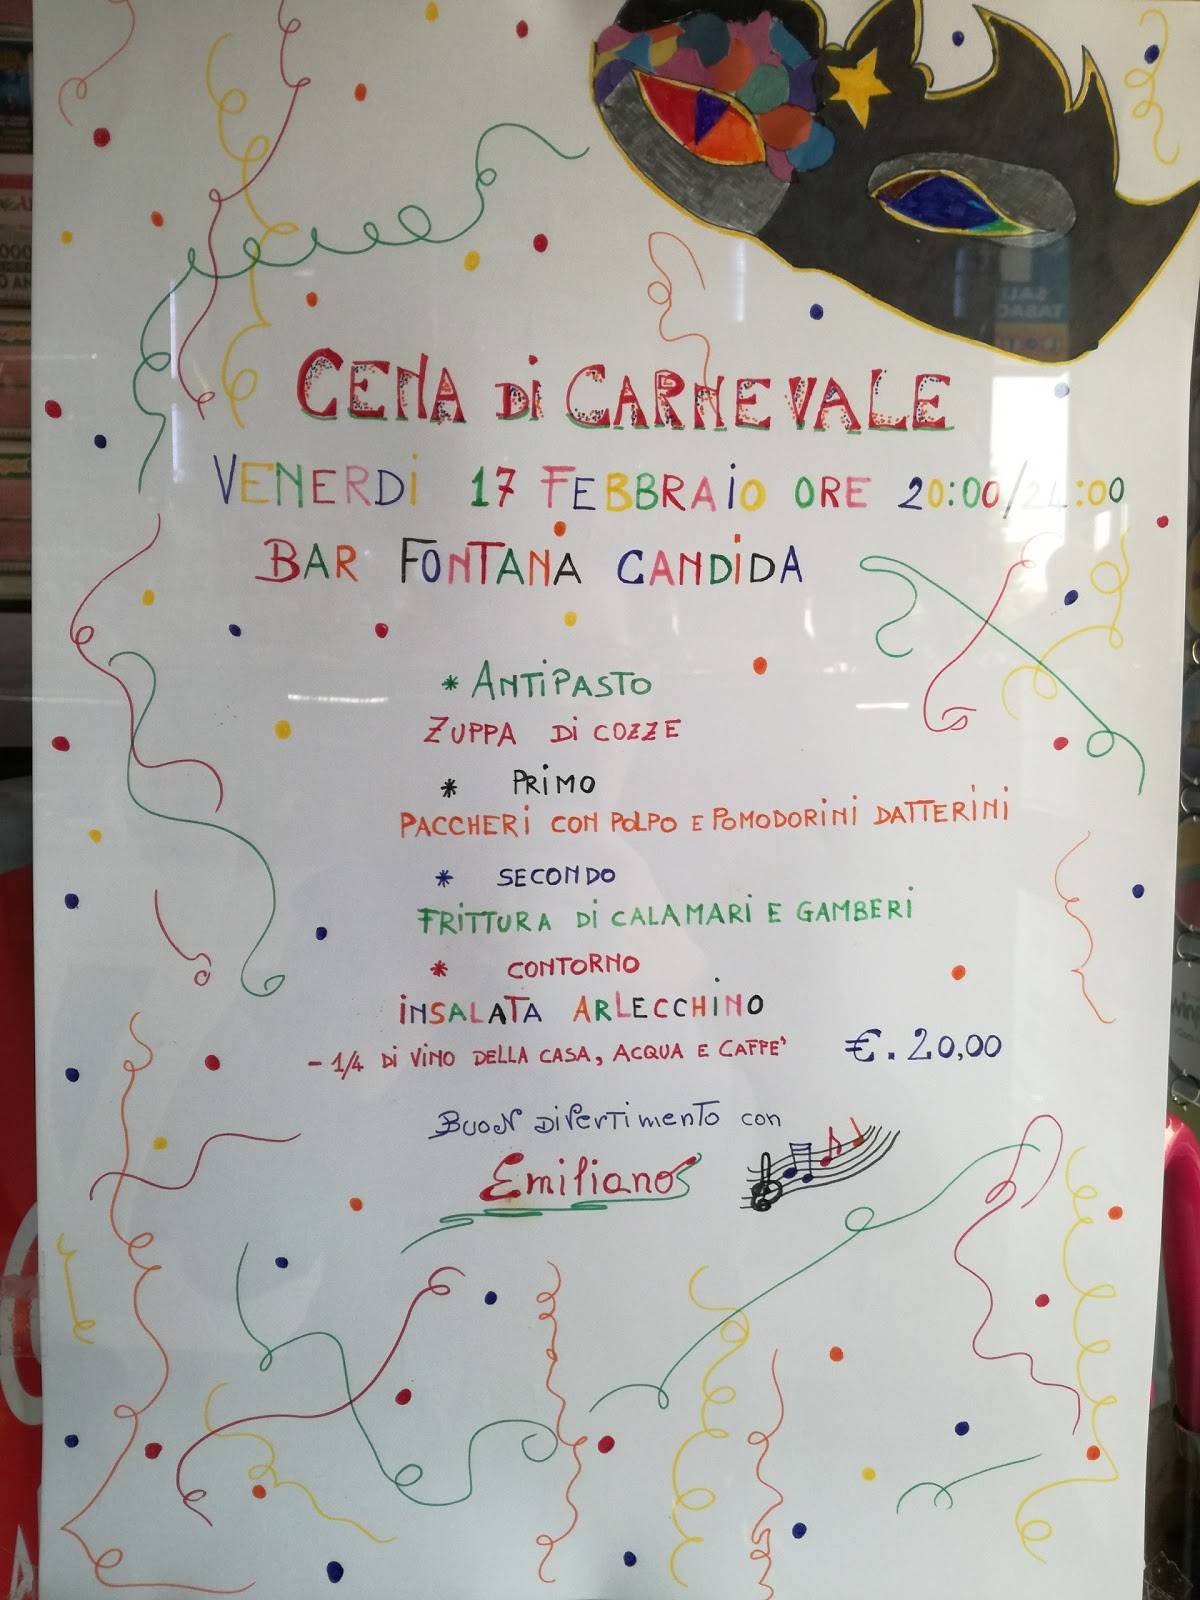 CENA Di CARNEVALE
VENERDi 17 FEBBRAiO ORE 20:00/21:00
BAR FONTANA CANDiDA
* ANTiPASTO
ZUPPA Di COZZE
* PRiMO
PACCHERi CON POLPO E POMODORiNi DATTERiNi
* SECONDO
FRiTTURA Di CALAMARi E GAMBERi
* CONTORNO
iNSALATA ARLECCHiNO
- 1/4 Di ViNO DELLA CASA, ACQUA E CAFFE' €. 20,00
BUON DiVERTiMENTO CON
Emiliano